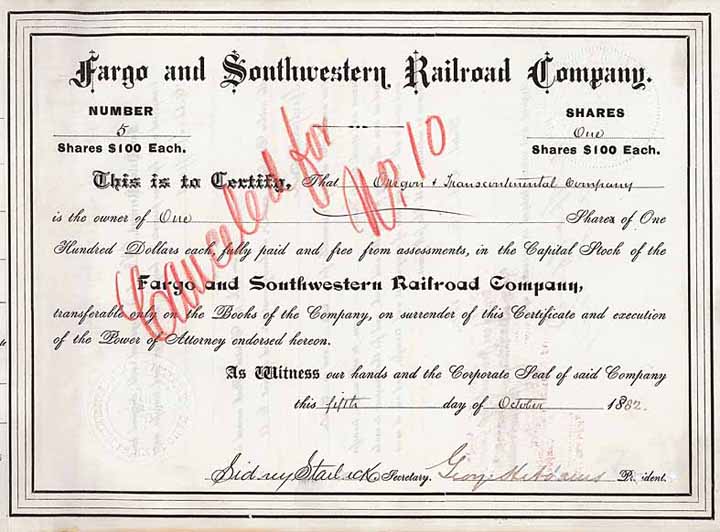 Fargo and Southwestern Railroad Company.
NUMBER
5
Shares $100 Each.
SHARES
One
Shares $100 Each.
Canceled for No. 10
This is to Certify, That Oregon & Transcontinental Company
is the owner of One Shares of One
Hundred Dollars each, fully paid and free from assessments, in the Capital Stock of the
Fargo and Southwestern Railroad Company,
transferable only on the Books of the Company, on surrender of this Certificate and execution
of the Power of Attorney endorsed hereon.
As Witness our hands and the Corporate Seal of said Company
this fifth day of October 1882.
Secretary. President.